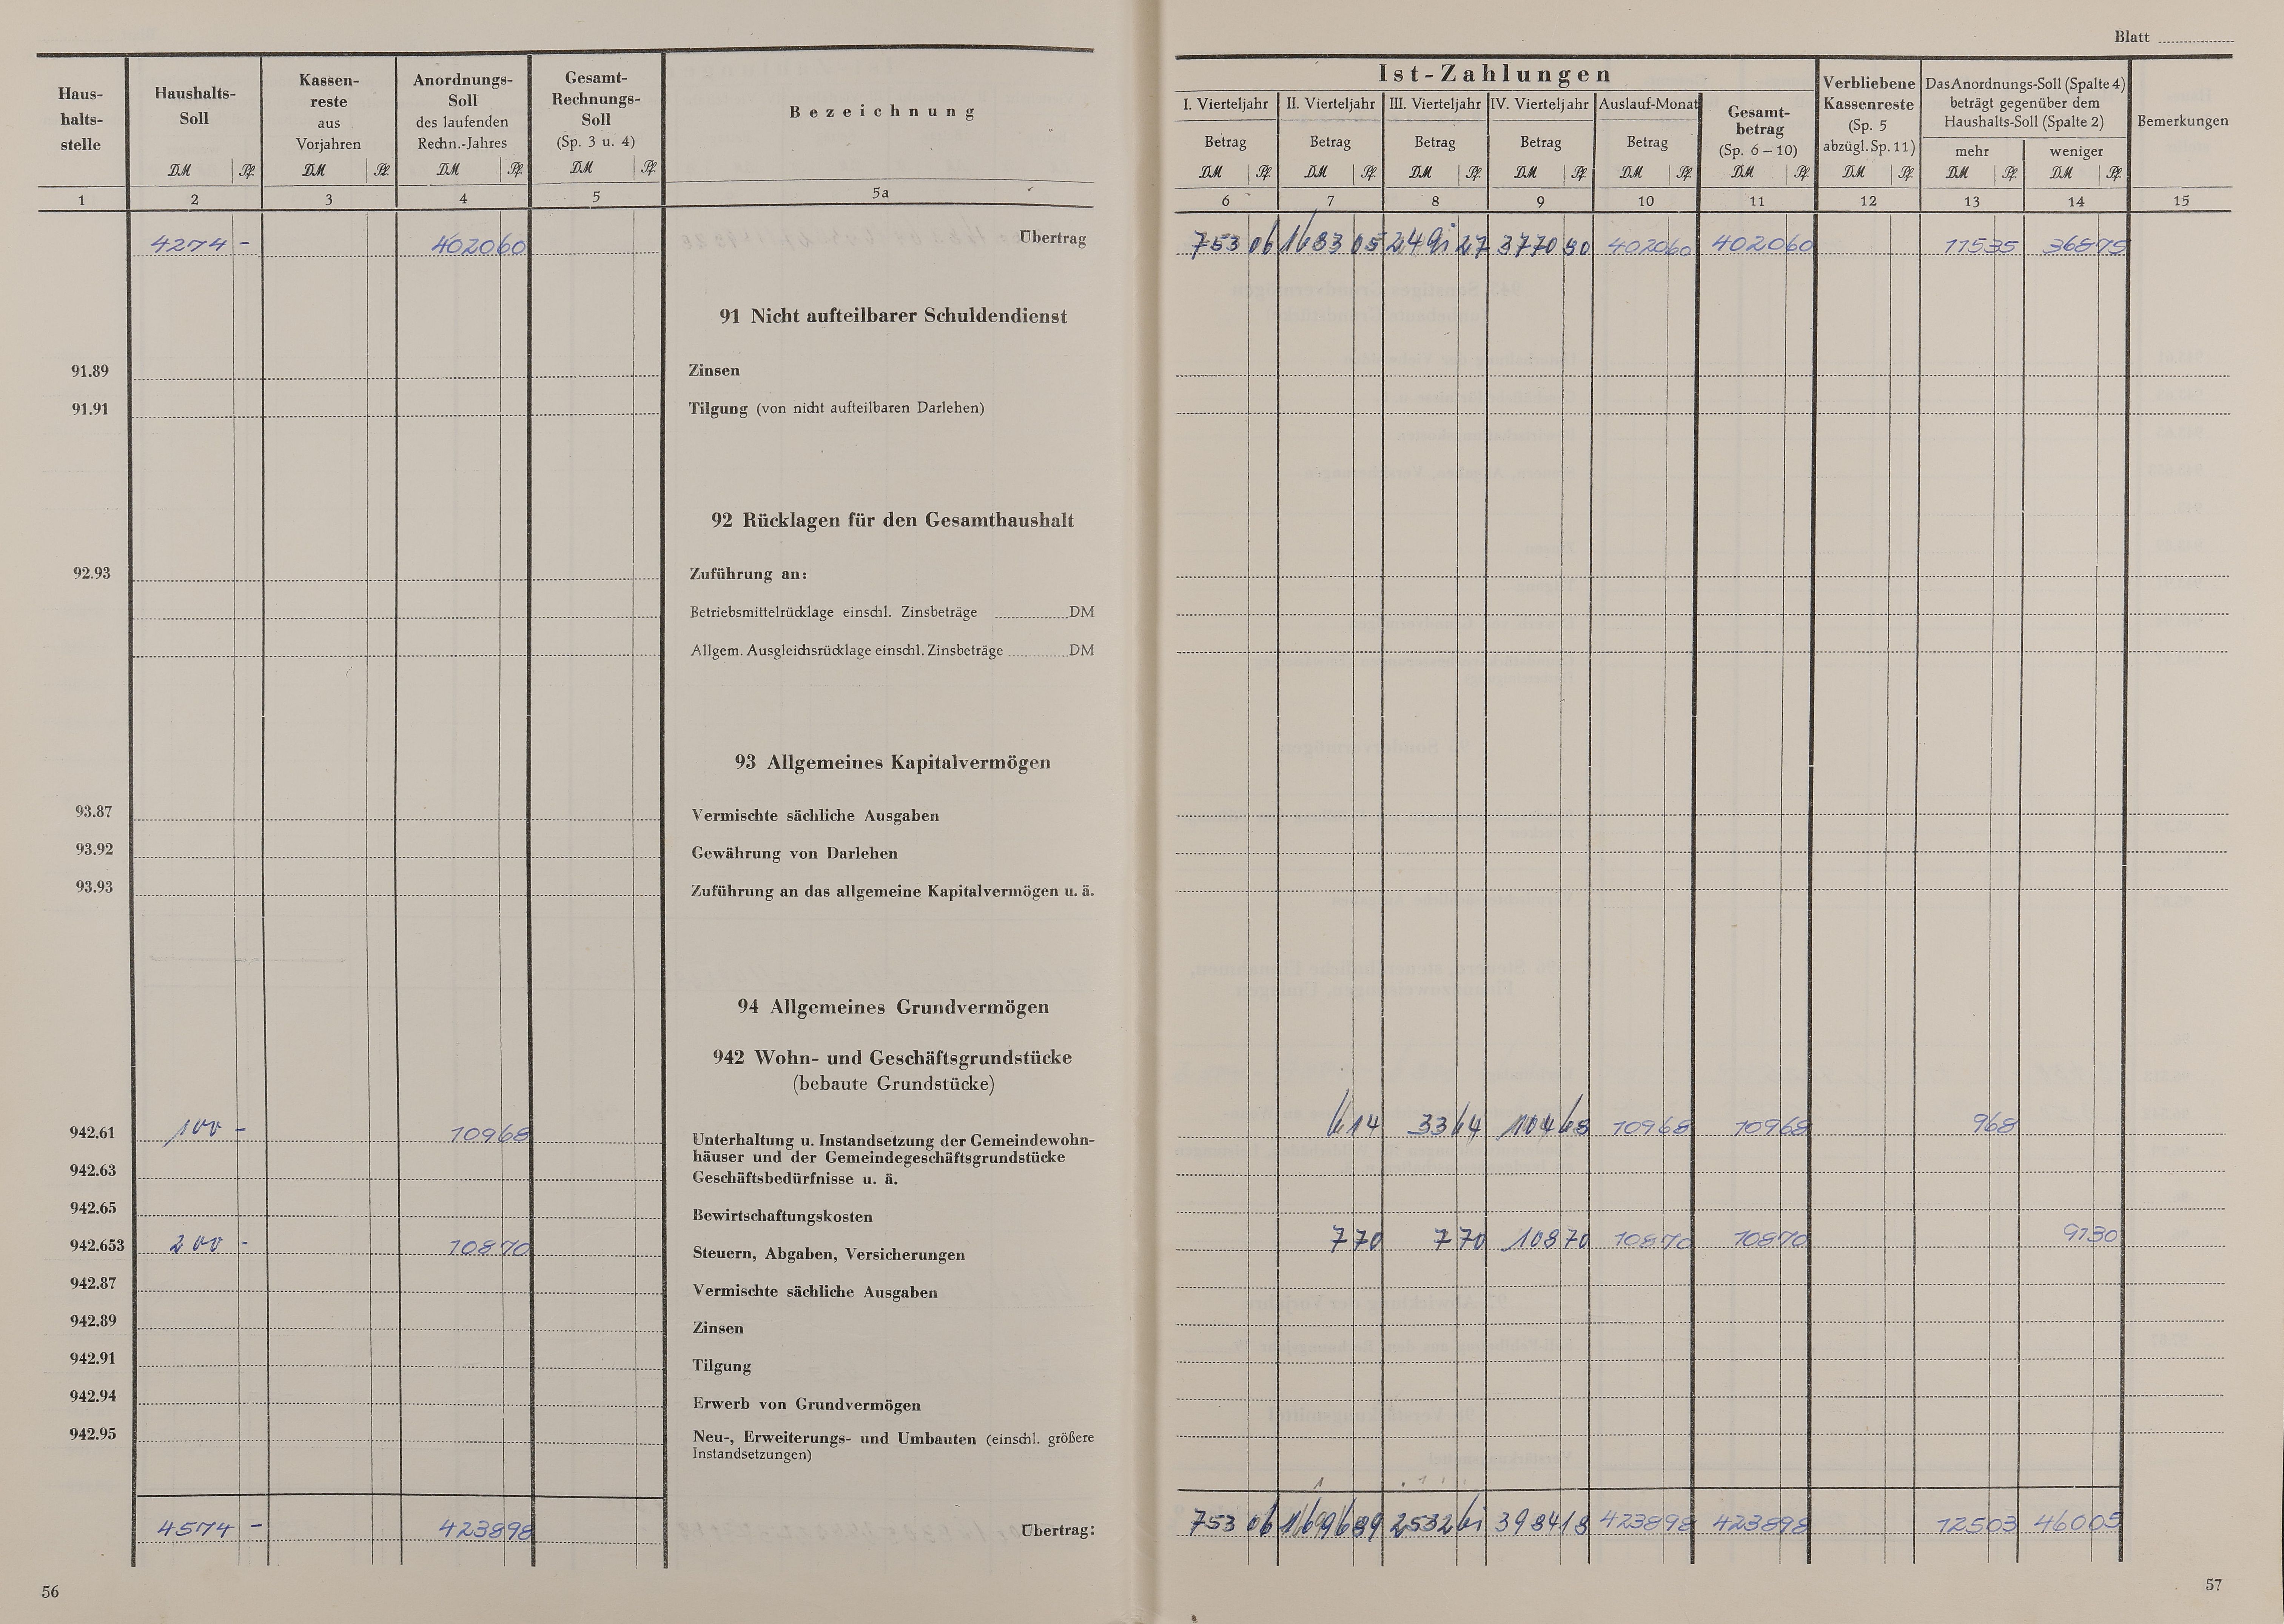 Blatt
Haus-
halts-
stelle
Haushalts-
Soll
DM Pf.
Kassen-
reste
aus
Vorjahren
DM Pf.
Anordnungs-
Soll
des laufenden
Rechn.-Jahres
DM Pf.
Gesamt-
Rechnungs-
Soll
(Sp. 3 u. 4)
DM Pf.
Bezeichnung
Ist-Zahlungen
I. Vierteljahr
Betrag
DM Pf.
II. Vierteljahr
Betrag
DM Pf.
III. Vierteljahr
Betrag
DM Pf.
IV. Vierteljahr
Betrag
DM Pf.
Auslauf-Monat
Betrag
DM Pf.
Gesamt-
betrag
(Sp. 6–10)
DM Pf.
Verbliebene
Kassenreste
(Sp. 5
abzügl. Sp. 11)
DM Pf.
Das Anordnungs-Soll (Spalte 4)
beträgt gegenüber dem
Haushalts-Soll (Spalte 2)
mehr
DM Pf.
weniger
DM Pf.
Bemerkungen
1 2 3 4 5 5a 6 7 8 9 10 11 12 13 14 15
4274 - 4020 60 Übertrag 753 06 1683 05 2491 27 3770 80 4020 60 4020 60 115 35 368 75
91 Nicht aufteilbarer Schuldendienst
91.89 Zinsen
91.91 Tilgung (von nicht aufteilbaren Darlehen)
92 Rücklagen für den Gesamthaushalt
92.93 Zuführung an:
Betriebsmittelrücklage einschl. Zinsbeträge DM
Allgem. Ausgleichsrücklage einschl. Zinsbeträge DM
93 Allgemeines Kapitalvermögen
93.87 Vermischte sächliche Ausgaben
93.92 Gewährung von Darlehen
93.93 Zuführung an das allgemeine Kapitalvermögen u. ä.
94 Allgemeines Grundvermögen
942 Wohn- und Geschäftsgrundstücke
(bebaute Grundstücke)
942.61 100 - 109 68 Unterhaltung u. Instandsetzung der Gemeindewohn- 6 14 33 64 104 68 109 68 109 68 9 68
häuser und der Gemeindegeschäftsgrundstücke
942.63 Geschäftsbedürfnisse u. ä.
942.65 Bewirtschaftungskosten
942.653 200 - 108 70 Steuern, Abgaben, Versicherungen 7 70 7 70 108 70 108 70 108 70 91 30
942.87 Vermischte sächliche Ausgaben
942.89 Zinsen
942.91 Tilgung
942.94 Erwerb von Grundvermögen
942.95 Neu-, Erweiterungs- und Umbauten (einschl. größere
Instandsetzungen)
4574 - 4238 98 Übertrag: 753 06 1696 89 2532 61 3984 18 4238 98 4238 98 125 03 460 05
56
57